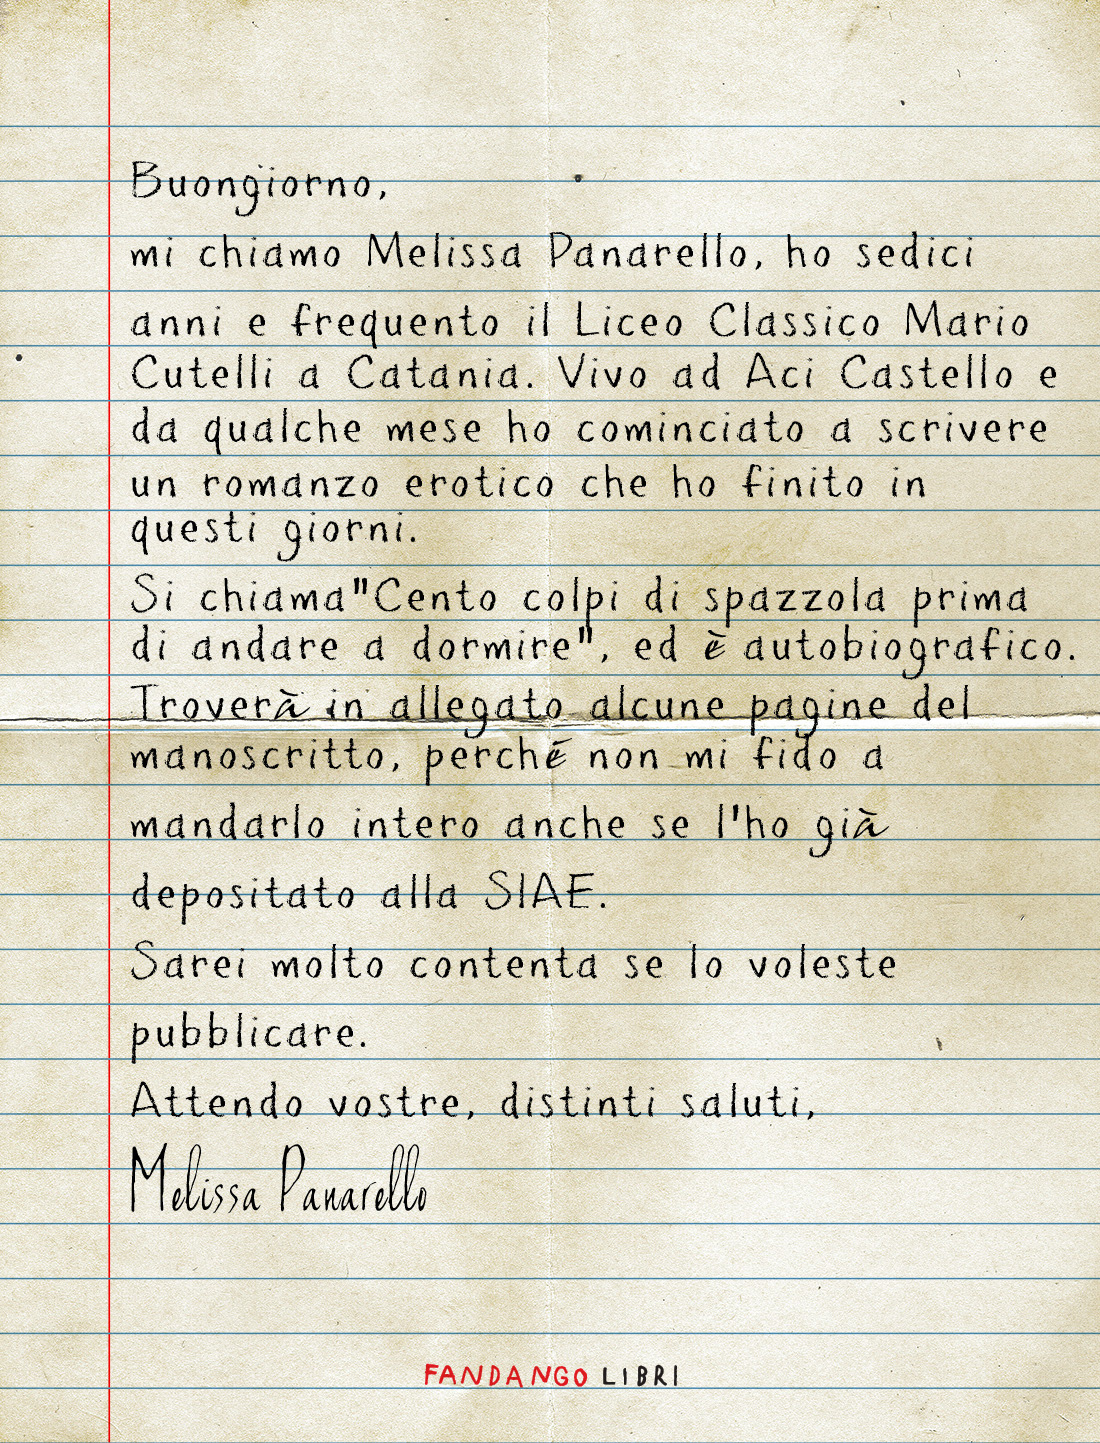 Buongiorno,
mi chiamo Melissa Panarello, ho sedici
anni e frequento il Liceo Classico Mario
Cutelli a Catania. Vivo ad Aci Castello e
da qualche mese ho cominciato a scrivere
un romanzo erotico che ho finito in
questi giorni.
Si chiama"Cento colpi di spazzola prima
di andare a dormire", ed è autobiografico.
Troverà in allegato alcune pagine del
manoscritto, perché non mi fido a
mandarlo intero anche se l'ho già
depositato alla SIAE.
Sarei molto contenta se lo voleste
pubblicare.
Attendo vostre, distinti saluti,
Melissa Panarello
FANDANGO LIBRI